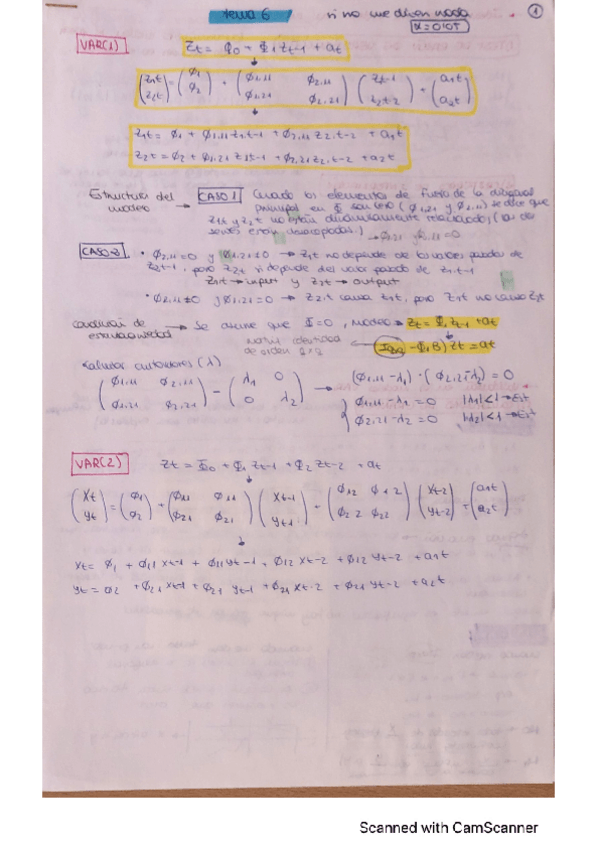 tema 6 si no me dicen nada ①
α = 0'05
VAR(1) Zt = Φ0 + Φ1 Zt-1 + at
(Z1t Z2t) = (φ1 φ2) + (φ1.11 φ2.11 φ1.21 φ2.21) (Zt-1 Z2t-2) + (a1t a2t)
Z1t = φ1 + φ1.11 Z1t-1 + φ2.11 Z2.t-2 + a1t
Z2t = φ2 + φ1.21 Z1t-1 + φ2.21 Z2.t-2 + a2t
Estructura del modelo → CASO 1 Cuando los elementos de fuera de la diagonal
principal en Φ son cero (φ1.21 y φ2.11) se dice que
Z1t y Z2t no están dinámicamente relacionados, (las dos
series están desacopladas.) → φ1.21 y φ2.11 = 0
CASO 2 • φ2.11 = 0 y φ1.21 ≠ 0 → Z1t no depende de los valores pasados de
Z2t-1, pero Z2t si depende del valor pasado de Z1.t-1
Z1t → input y Z2t → output
• φ2.11 ≠ 0 y φ1.21 = 0 → Z2.t causa Z1t, pero Z1t no causa Z2t
Condición de estacionariedad → Se asume que Φ = 0, modelo → Zt = Φ1 Zt-1 + at
matriz identidad de orden 2x2 ← (I2x2 - Φ1 B) Zt = at
Calcular autovalores (λ)
(φ1.11 φ2.11 φ1.21 φ2.21) - (λ1 0 0 λ2) → (φ1.11 - λ1) · (φ2.21 - λ2) = 0
φ1.11 - λ1 = 0 |λ1| < 1 → Est
φ2.21 - λ2 = 0 |λ2| < 1 → Est
VAR(2) Zt = Φ0 + Φ1 Zt-1 + Φ2 Zt-2 + at
(Xt Yt) = (φ1 φ2) + (φ11 φ11 φ21 φ21) (Xt-1 Yt-1) + (φ12 φ12 φ22 φ22) (Xt-2 Yt-2) = (a1t a2t)
Xt = φ1 + φ11 Xt-1 + φ11 Yt-1 + φ12 Xt-2 + φ12 Yt-2 + a1t
Yt = φ2 + φ21 Xt-1 + φ21 Yt-1 + φ21 Xt-2 + φ21 Yt-2 + a2t
Scanned with CamScanner